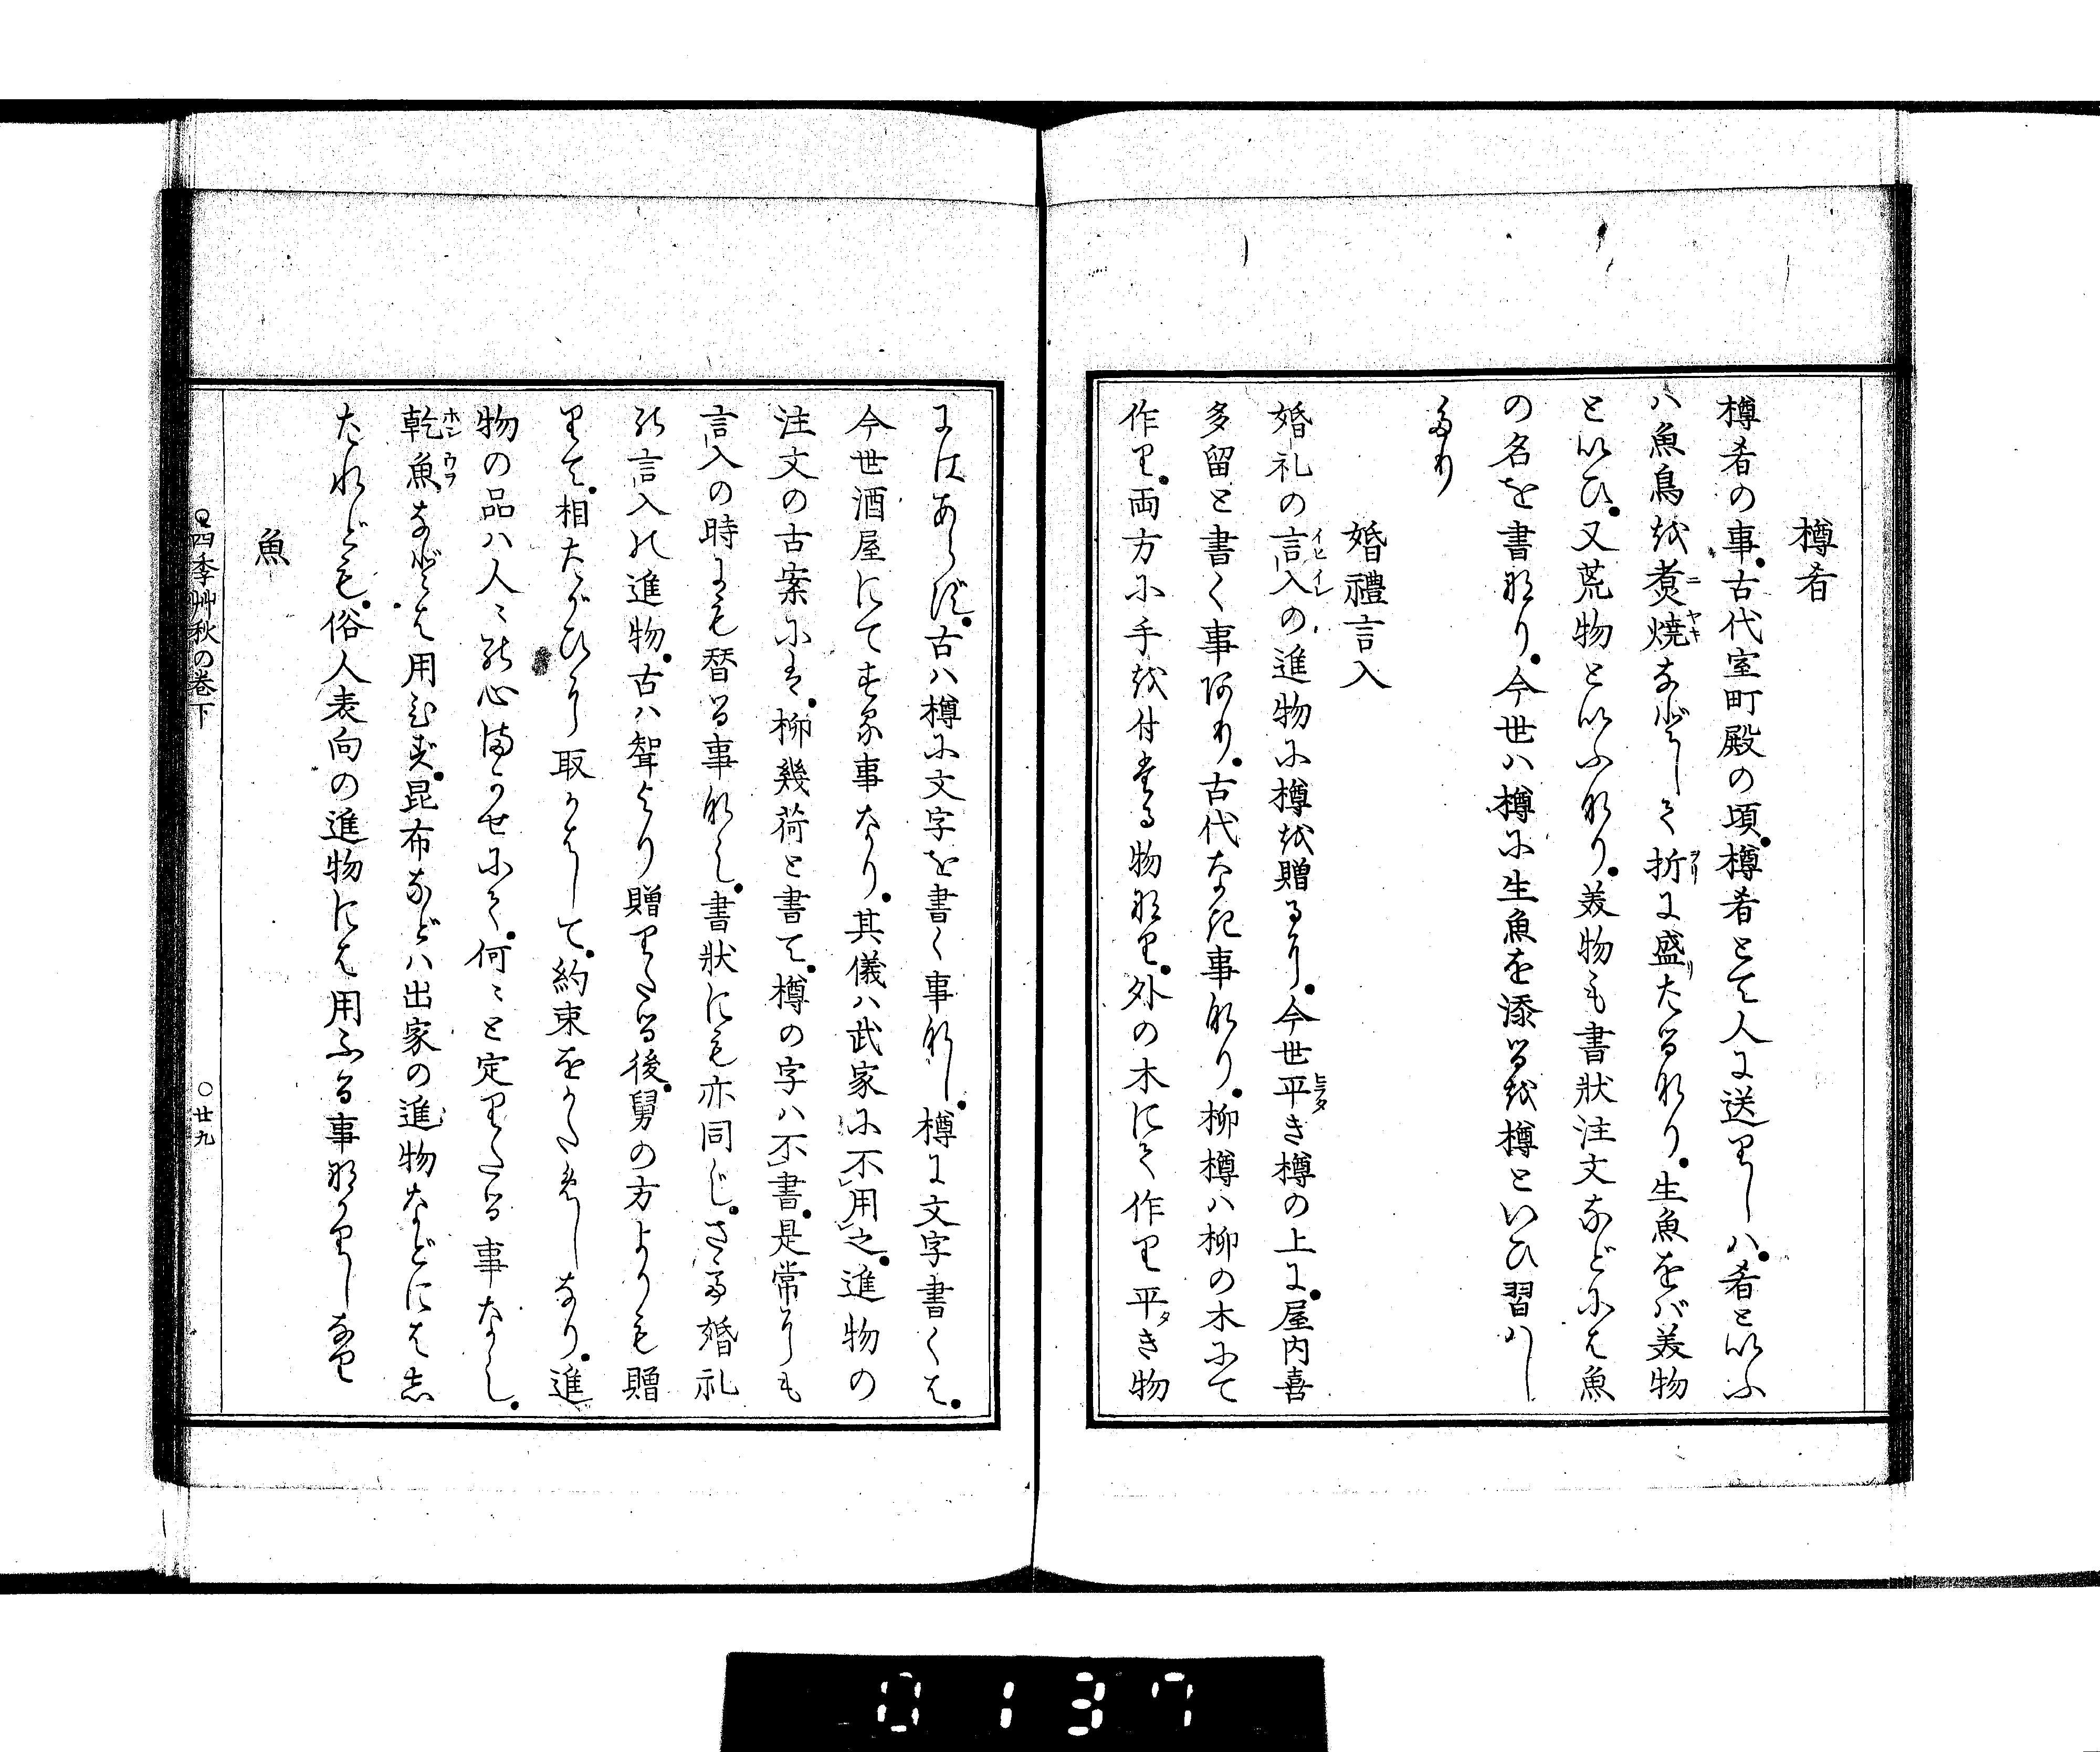 樽肴
樽肴の事。古代室町殿の頃。樽肴とて人に送りしハ。肴といふ
ハ魚鳥を煑焼などして折に盛たるなり。生魚をバ美物
といひ。又荒物といふなり。美物も書狀注文などにも魚
の名を書なり。今世ハ樽に生魚を添るを樽といひ習ハし
たり
婚禮言入
婚礼の言入の進物に樽を贈るに。今世平き樽の上に。屋内喜
多留と書く事あり。古代なき事なり。柳樽ハ柳の木にて
作り。両方に手を付たる物なり。外の木にて作り平き物
にはあらず。古ハ樽に文字を書く事なし。樽に文字書くは。
今世酒屋にてする事なり。其儀ハ武家に不用之。進物の
注文の古案にも。柳幾荷と書て。樽の字ハ不書。是常にも
言入の時にも替る事なし。書狀にも亦同じ。さて婚礼
の言入の進物。古ハ聟より贈りたる後。舅の方よりも贈
りて。相たがひに取かはして。約束をかためしなり。進
物の品ハ人々の心まかせにて。何々と定りたる事なし。
乾魚などは用ひず。昆布などハ出家の進物などにはし
たれども。俗人表向の進物には用ふる事なかりしなり
魚
四季艸秋の巻下
〇廿九
0137